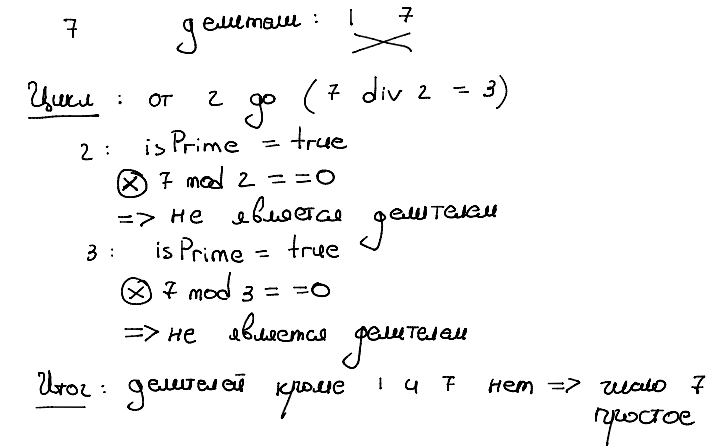 7 делители: 1 7
Цикл: от 2 до (7 div 2 = 3)
2: isPrime = true
7 mod 2 = =0
=> не является делителем
3: isPrime = true
7 mod 3 = =0
=> не является делителем
Итог: делителей кроме 1 и 7 нет => число 7
простое